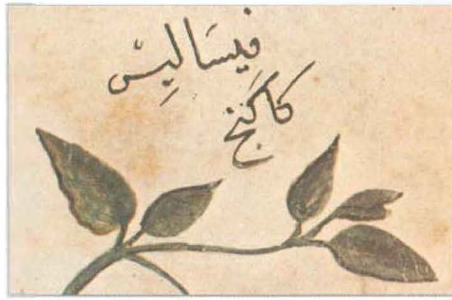 فيسَاليِسْ
كاكَنج